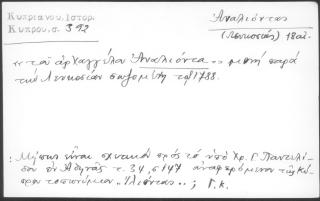 Κυπριανου, Ιστορ.
Κυπρου, σ. 392
Ἀναλιόντας
(Λευκοσίας) 18 αἰ.
"τοῦ ἀρχαγγέλου Ἀναλιόντα" μονὴ παρὰ
τὴν Λευκοσίαν σῳζομένη τῷ 1788.
: Μήπως εἶναι σχετικὸν πρὸς τὸ ὑπὸ Χρ. Γ. Παντελί-
δου ἐν Ἀθηνᾶς τ. 34, σ. 147 ἀναφερόμενον τῆς Κύ-
πρου τοπωνύμιον "Ἠλιόντας"; Γ.Κ.